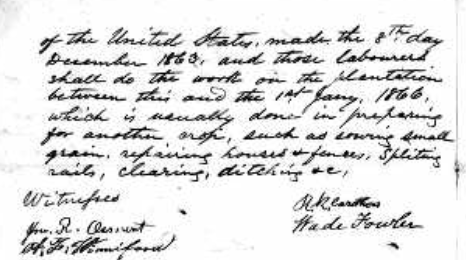 of the United States, made the 8th day
December 1863, and those labourers
shall do the work on the plantation
between this and the 1st Jany, 1866,
which is usually done in preparing
for another crop, such as sowing small
grain, repairing houses & fences, Spliting
rails, clearing, ditching &c,
Witnessed
Wade Fowler